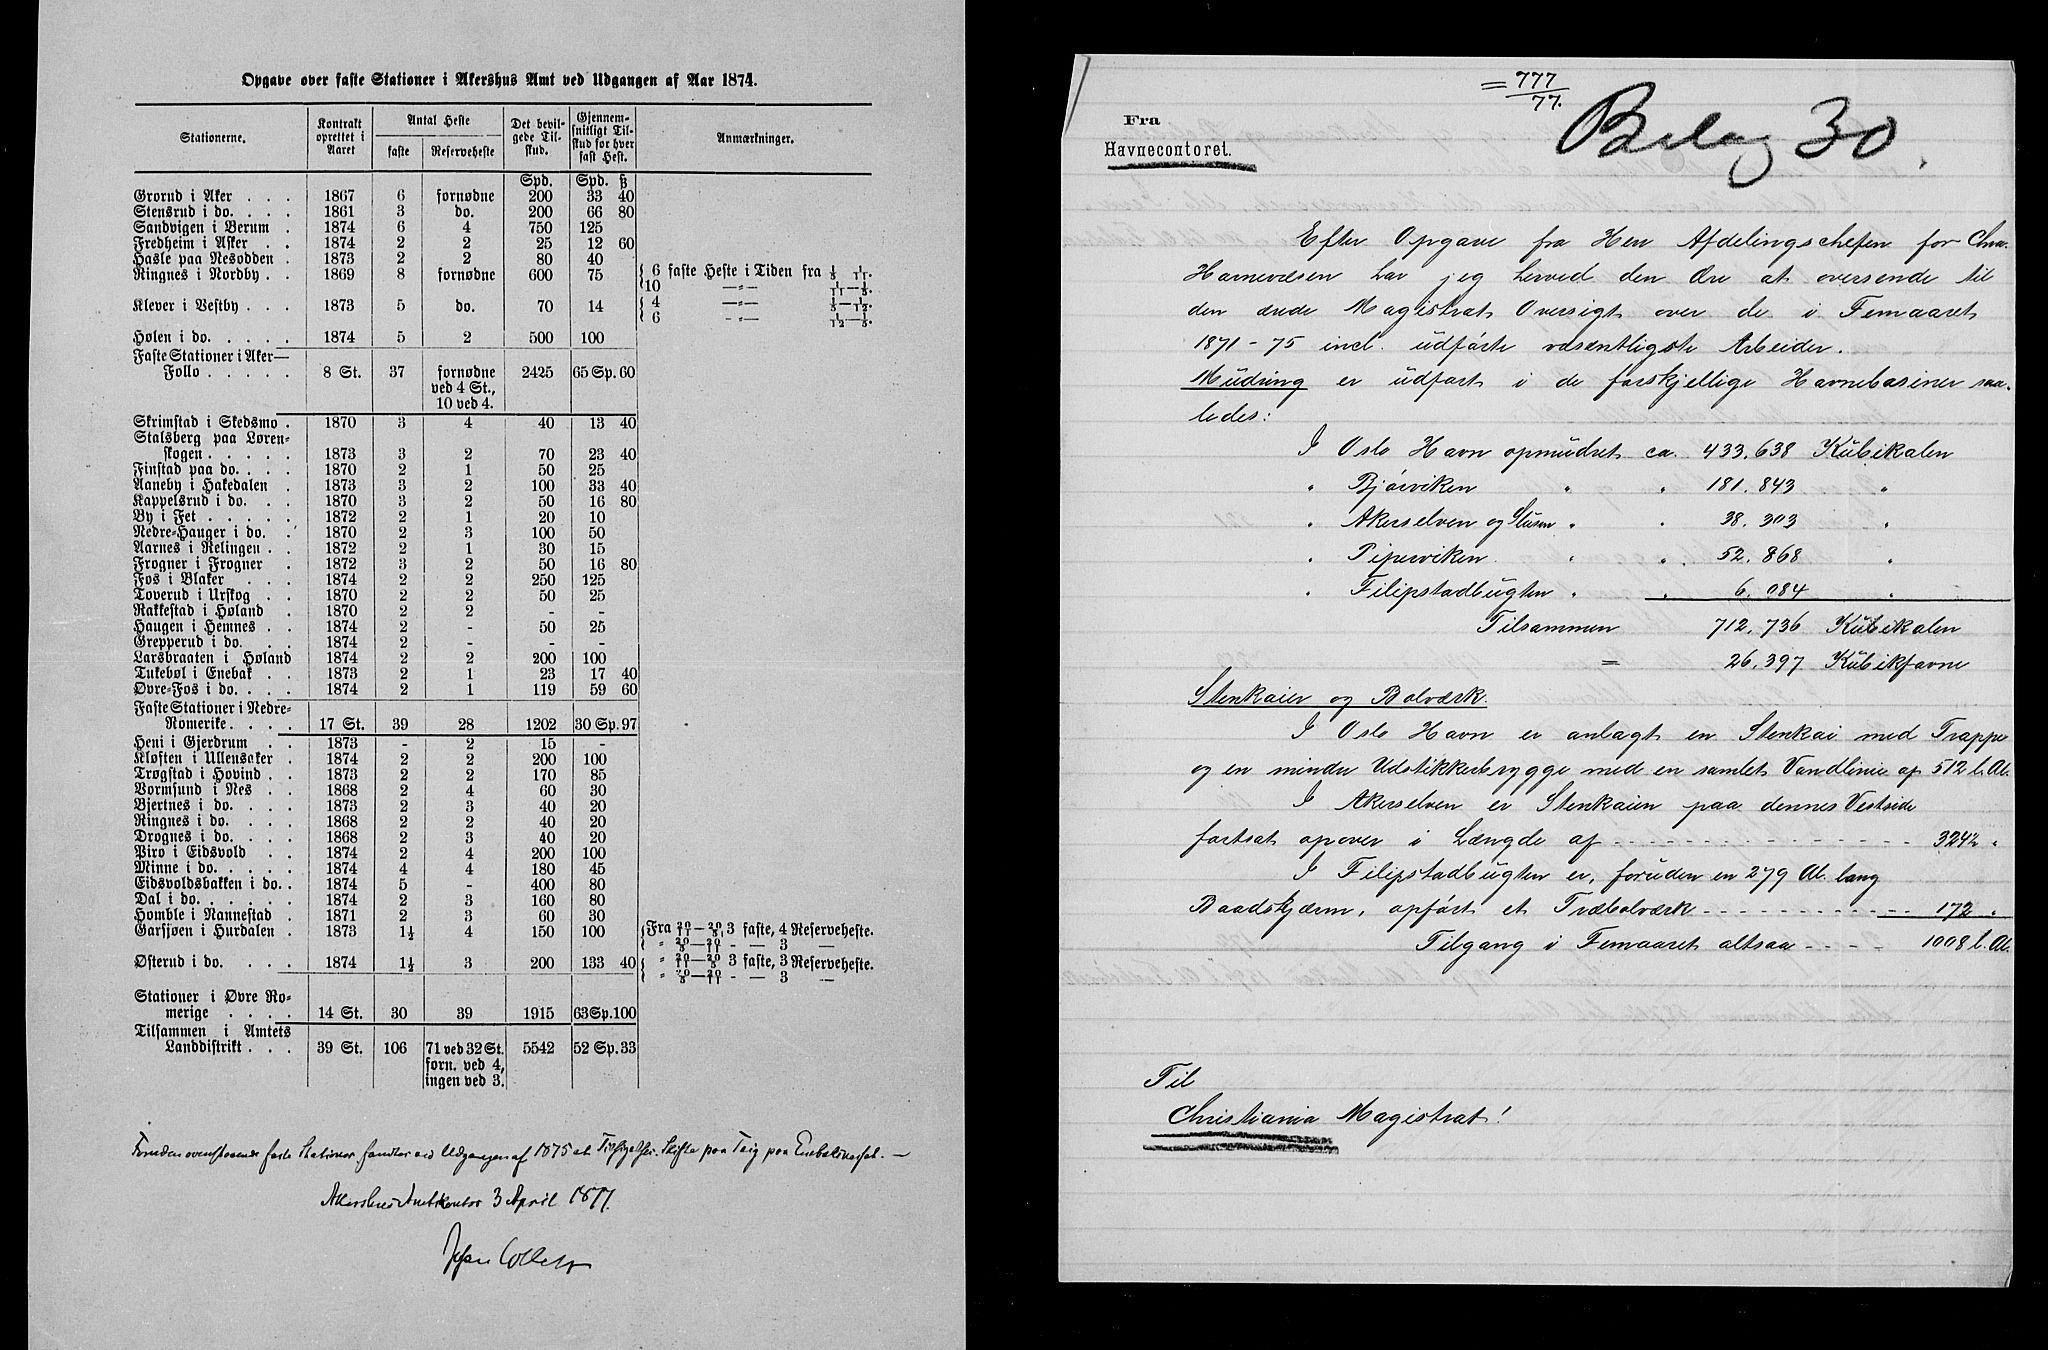 Opgave over faste Stationer i Akershus Amt ved Udgangen af Aar 1874.
Stationerne. Kontrakt oprettet i Aaret Antal Heste faste Reserveheste Det bevilgede Tilskud. Gjennemsnitligt Tilskud for hver fast Hest. Anmærkninger.
Spd. Spd. ß
Grorud i Aker . . . 1867 6 fornødne 200 33 40
Stensrud i do. . . . 1861 3 do. 200 66 80
Sandvigen i Berum . 1874 6 4 750 125
Fredheim i Asker . . 1874 2 2 25 12 60
Hasle paa Nesodden . 1873 2 2 80 40
Ringnes i Nordby . . 1869 8 fornødne 600 75 { 6 faste Heste i Tiden fra 1/5 — 1/11.
{10 —„— 1/11—1/5.
Klever i Vestby . . . 1873 5 do. 70 14 { 4 —„— 1/5—1/12.
{ 6 —„— 1/12—1/5.
Hølen i do. . . . . 1874 5 2 500 100
Faste Stationer i Aker—
Follo . . . . . 8 St. 37 fornødne 2425 65 Sp. 60
ved 4 St.,
10 ved 4.
Skrimstad i Skedsmo . 1870 3 4 40 13 40
Stalsberg paa Løren-
skogen . . . . . 1873 3 2 70 23 40
Finstad paa do. . . . 1870 2 1 50 25
Aaneby i Hakedalen . 1873 3 2 100 33 40
Kappelsrud i do. . . 1870 3 2 50 16 80
By i Fet . . . . . 1872 2 1 20 10
Nedre-Hauger i do. . 1870 2 3 100 50
Aarnes i Relingen . . 1872 2 1 30 15
Frogner i Frogner . 1872 3 2 50 16 80
Fos i Blaker . . . 1874 2 2 250 125
Toverud i Urskog . . 1870 2 2 50 25
Rakkestad i Høland . 1870 2 2 - -
Haugen i Hemnes . . 1874 2 - 50 25
Grepperud i do. . . 1874 2 - - -
Larsbraaten i Høland 1874 2 2 200 100
Tukebøl i Enebak . . 1873 2 1 23 17 40
Øvre-Fos i do. . . . 1874 2 1 119 59 60
Faste Stationer i Nedre-
Romerike . . . . 17 St. 39 28 1202 30 Sp. 97
Heni i Gjerdrum . . 1873 - 2 15 -
Kløften i Ullensaker . 1874 2 2 200 100
Trøgstad i Hovind . . 1873 2 2 170 85
Vormsund i Nes . . 1868 2 4 60 30
Bjertnes i do. . . . 1873 2 3 40 20
Ringnes i do. . . . 1868 2 2 40 20
Drognes i do. . . . 1868 2 3 40 20
Piro i Eidsvold . . 1874 2 4 200 100
Minne i do. . . . . 1874 4 4 180 45
Eidsvoldsbakken i do. . 1874 5 - 400 80
Dal i do. . . . . . 1874 2 3 160 80
Homble i Nannestad . 1871 2 3 60 30
Garsjøen i Hurdalen . 1873 1½ 4 150 100 {Fra 20/11—20/5, 3 faste, 4 Reserveheste.
{ „ 20/5—20/11 - — 3 —
Østerud i do. . . . 1874 1½ 3 200 133 40 { „ 20/11—20/5 3 faste, 3 Reserveheste.
{ „ 20/5—20/11 - — 3 —
Stationer i Øvre Ro-
merige . . . . 14 St. 30 39 1915 63Sp.100
Tilsammen i Amtets
Landdistrikt . . . 39 St. 106 71 ved 32 St. 5542 52 Sp. 33
forn. ved 4,
ingen ved 3.
Foruden ovenstaaende faste Stationer fandtes ved Udgangen af 1875 et Tilsigelses-Skifte paa Teig paa Enebakneset. —
Akershus Amtskontor 3 April 1877.
= 777/77.
Bilag 30.
Fra
Havnecontoret.
Efter Opgave fra Herr Afdelingschefen for Chra.
Havnevæsen har jeg herved den Ære at oversende til
den ærede Magistrat Oversigt over de i Femaaret
1871-75 incl. udførte væsentligste Arbeider.
Mudring er udført i de forskjellige Havnebasiner saa-
ledes:
I Oslo Havn opmudret ca. 433.638 Kubikalen
" Bjørviken " " 181.843 "
" Akerselven og Slusen " " 38.303 "
" Piperviken " " 52.868 "
" Filipstadbugten " " 6.084 "
Tilsammen 712.736 Kubikalen
= 26.397 Kubikfavne
Stenkaier og Bolværk.
I Oslo Havn er anlagt en Stenkai med Trappe
og en mindre Udstikkerbrygge med en samlet Vandlinie af 512 l. Al.
I Akerselven er Stenkaien paa dennes Vestside
fortsat opover i Længde af - - - - - 324½ "
I Filipstadbugten er, foruden en 279 Al. lang
Baadskjærm, opført et Træbolværk - - - - - 172 "
Tilgang i Femaaret altsaa - - - - 1008 l. Al.
Til
Christiania Magistrat!